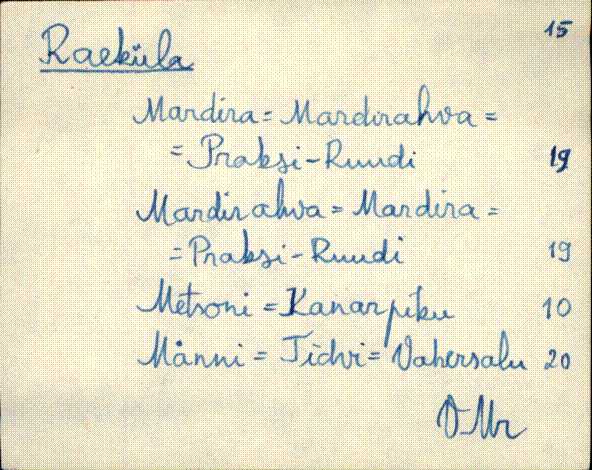 15
Raeküla
Mardira = Mardirahva =
= Praksi-Ruudi 19
Mardirahva = Mardira =
= Praksi-Ruudi 19
Metsoni = Kanarpiku 10
Männi = Tidvi = Vahersalu 20